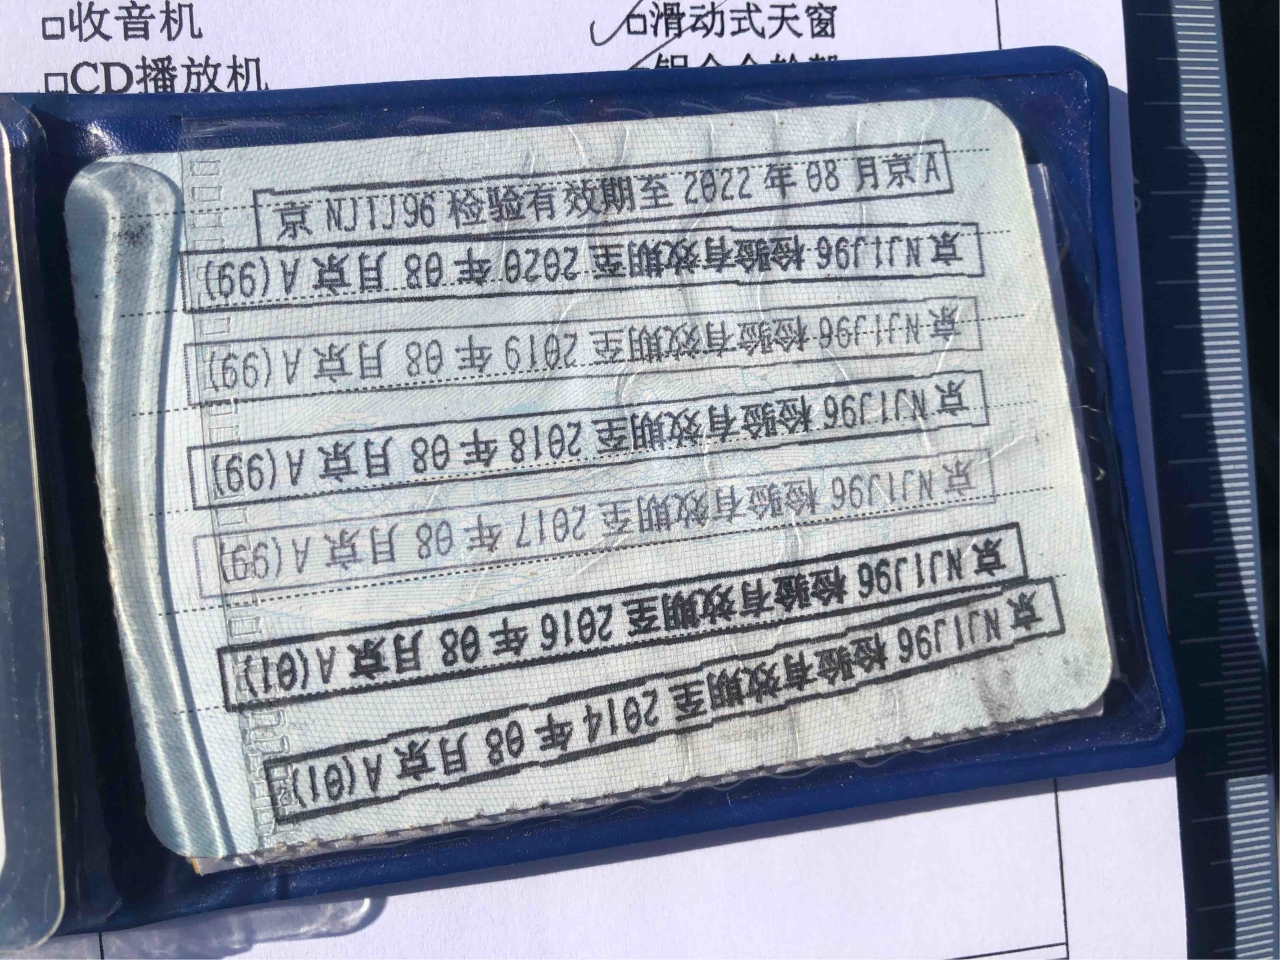 □收音机
□滑动式天窗
□CD播放机
京NJ1J96 检验有效期至 2022 年 08 月京A
京NJ1J96 检验有效期至 2020 年 08 月京 A(99)
京NJ1J96 检验有效期至 2019 年 08 月京 A(99)
京NJ1J96 检验有效期至 2018 年 08 月京 A(99)
京NJ1J96 检验有效期至 2017 年 08 月京 A(99)
京NJ1J96 检验有效期至 2016 年 08 月京 A(01)
京NJ1J96 检验有效期至 2014 年 08 月京 A(01)